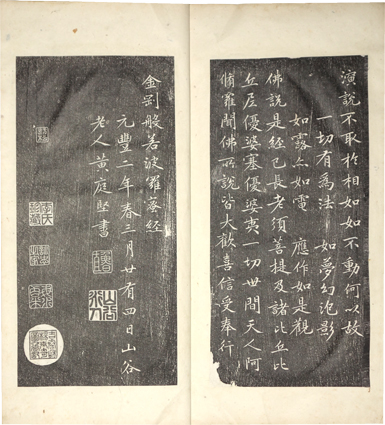 演說不取於相如如不動何以故
一切有為法 如夢幻泡影
如露亦如電 應作如是觀
佛說是經已長老須菩提及諸比丘比
丘尼優婆塞優婆夷一切世間天人阿
脩羅聞佛所說皆大歡喜信受奉行
金剛般若波羅蜜經
元豐二年春三月廿有四日山谷
老人黃庭堅書